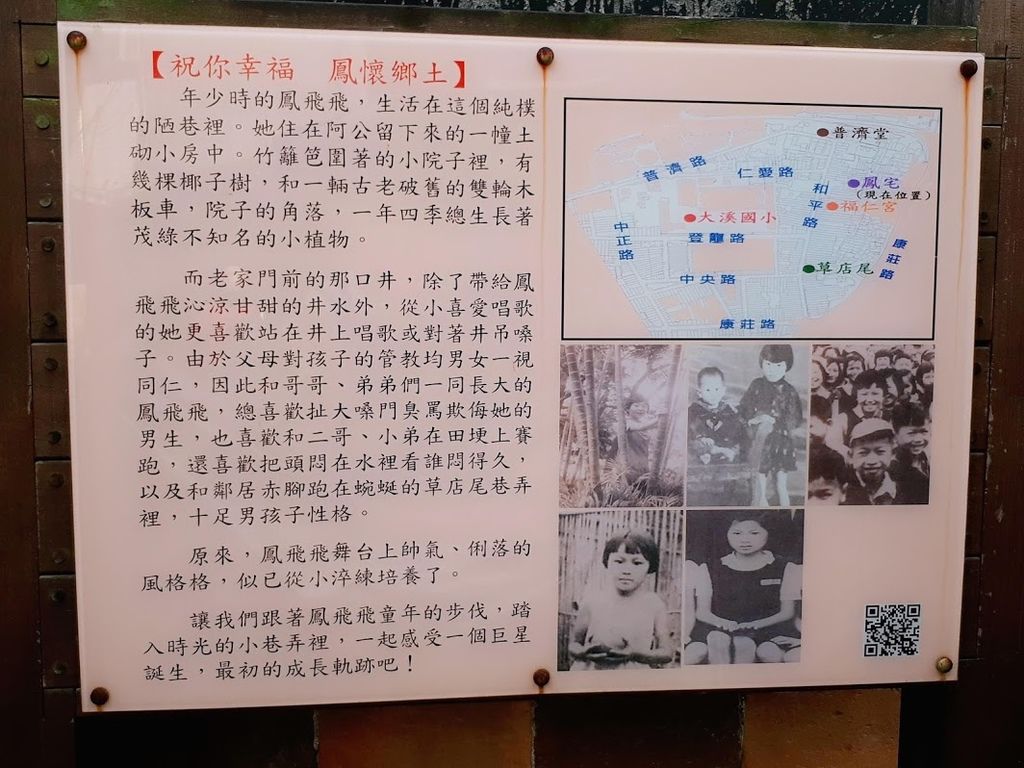 【祝你幸福　鳳懷鄉土】
年少時的鳳飛飛，生活在這個純樸
的陋巷裡。她住在阿公留下來的一幢土
砌小房中。竹籬笆圍著的小院子裡，有
幾棵椰子樹，和一輛古老破舊的雙輪木
板車，院子的角落，一年四季總生長著
茂綠不知名的小植物。
而老家門前的那口井，除了帶給鳳
飛飛沁涼甘甜的井水外，從小喜愛唱歌
的她更喜歡站在井上唱歌或對著井吊嗓
子。由於父母對孩子的管教均男女一視
同仁，因此和哥哥、弟弟們一同長大的
鳳飛飛，總喜歡扯大嗓門臭罵欺侮她的
男生，也喜歡和二哥、小弟在田埂上賽
跑，還喜歡把頭悶在水裡看誰悶得久，
以及和鄰居赤腳跑在蜿蜒的草店尾巷弄
裡，十足男孩子性格。
原來，鳳飛飛舞台上帥氣、俐落的
風格格，似已從小淬練培養了。
讓我們跟著鳳飛飛童年的步伐，踏
入時光的小巷弄裡，一起感受一個巨星
誕生，最初的成長軌跡吧！
普濟堂
普濟路
仁愛路
鳳宅
(現在位置)
和平路
福仁宮
大溪國小
中正路
登龍路
康莊路
草店尾
中央路
康莊路